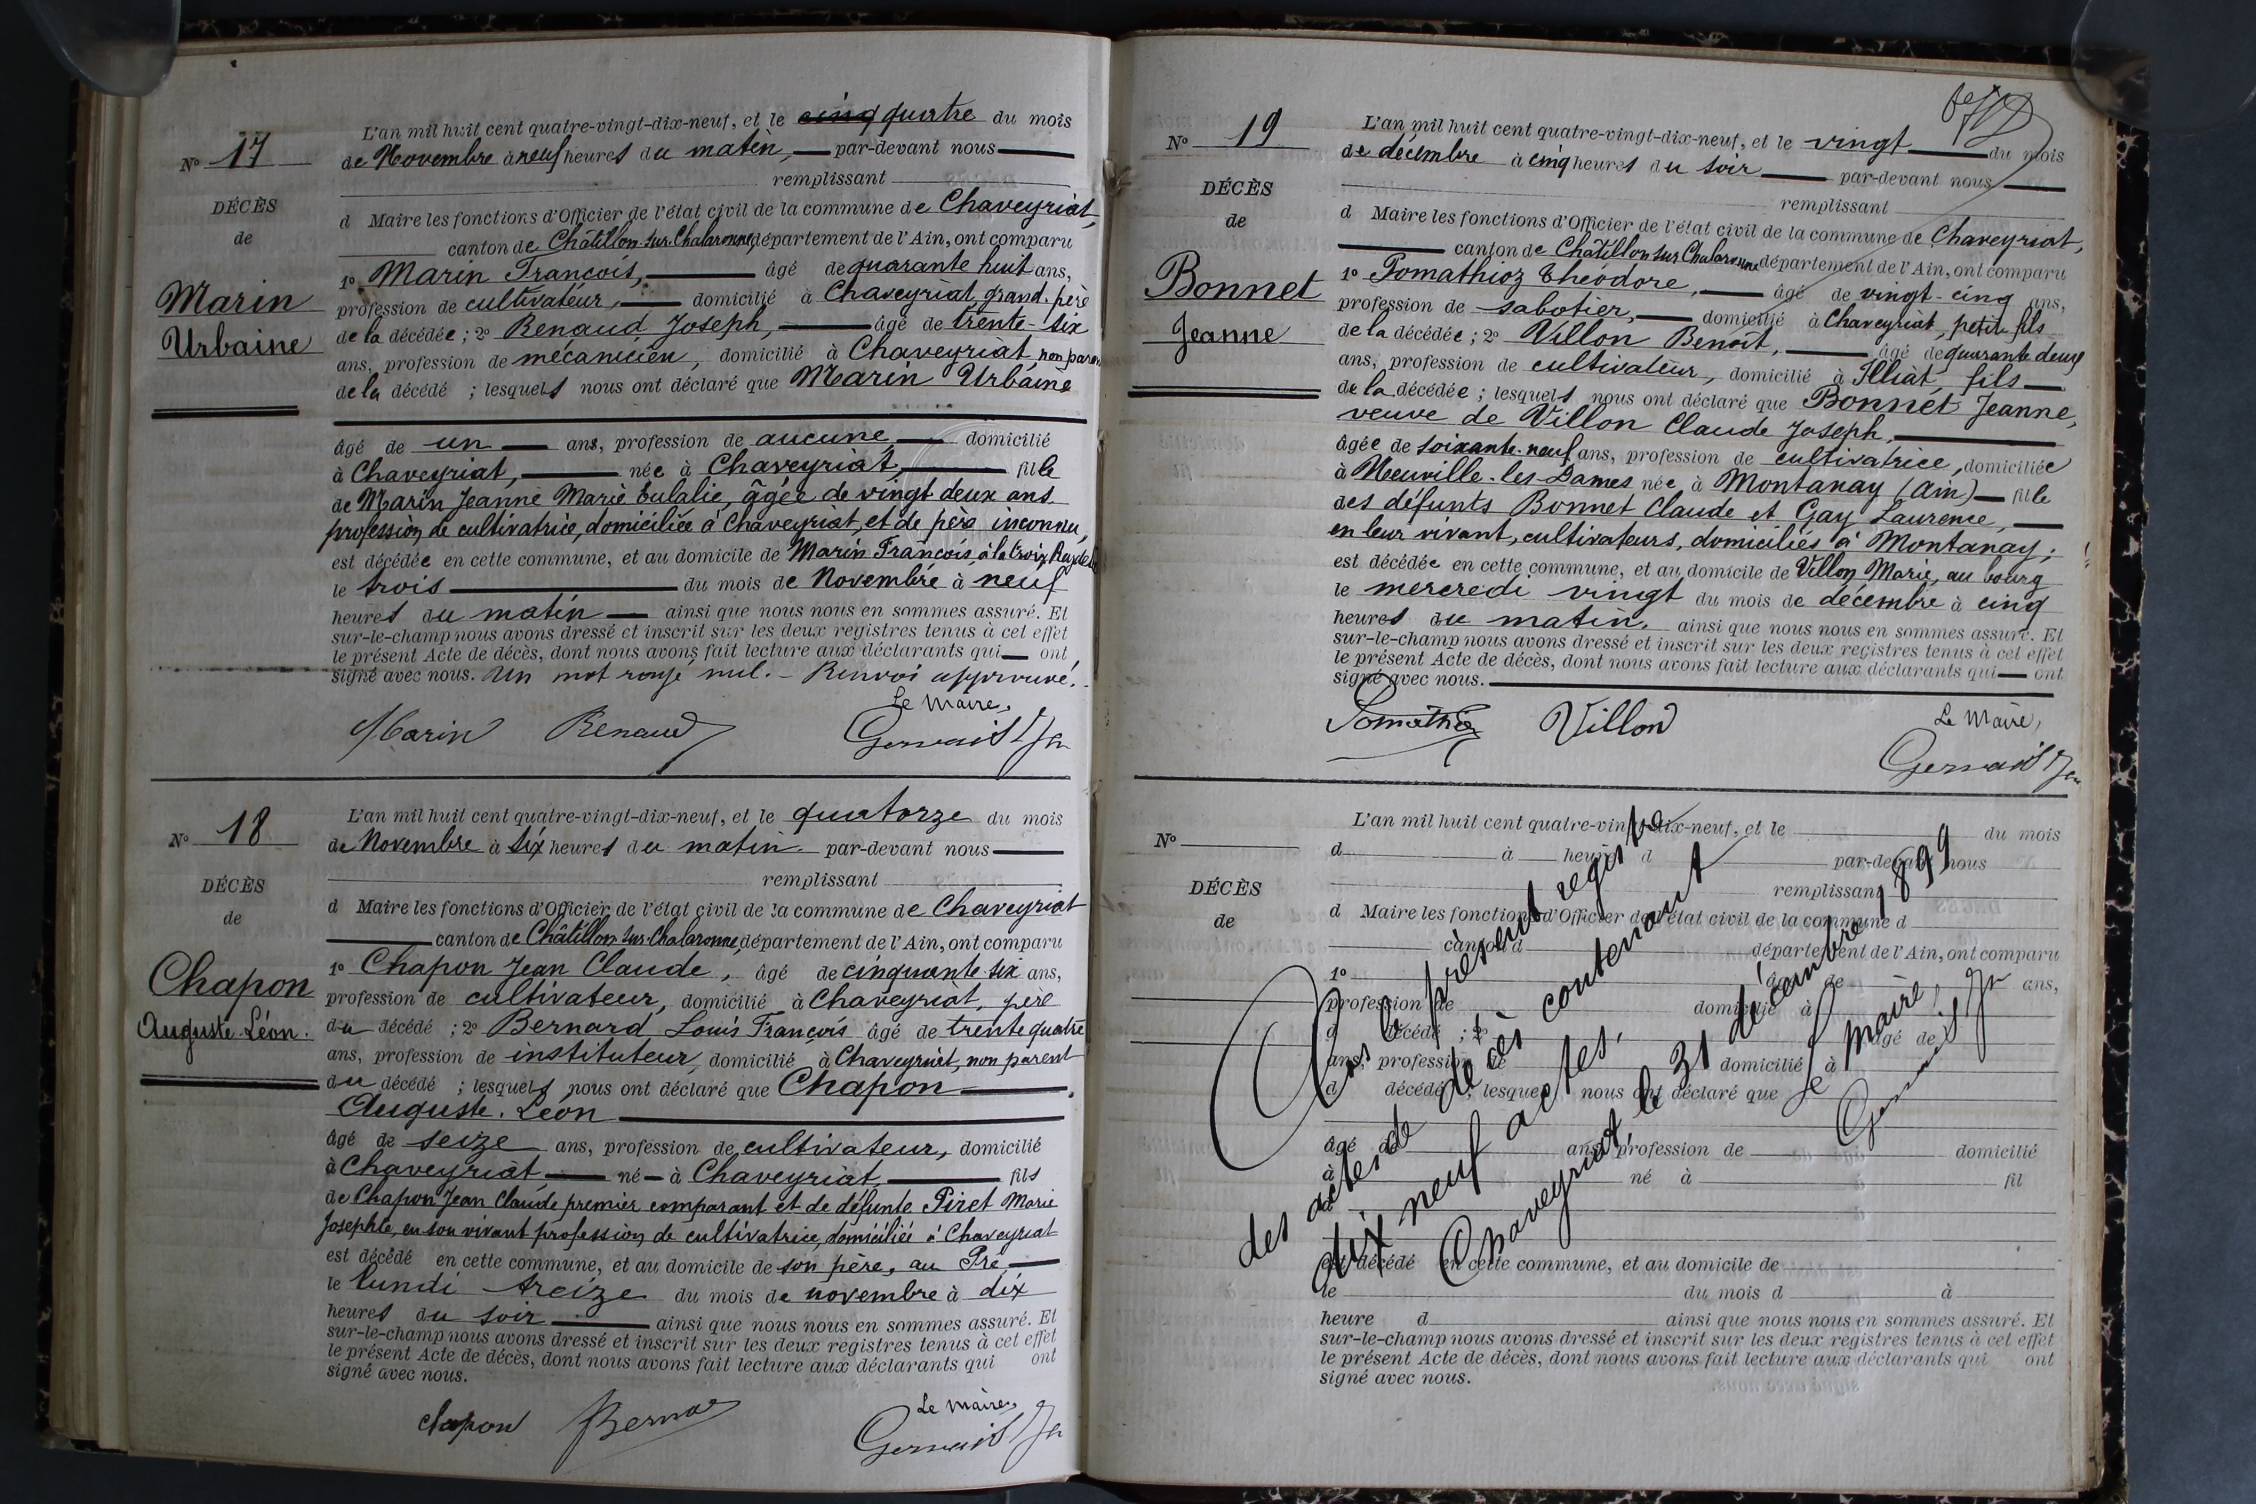 L'an mil huit cent quatre-vingt-dix-neuf, et le cinq quatre du mois
No 17
de Novembre à neuf heures du matin, par-devant nous
remplissant
DÉCÈS
de
Marin
Urbaine
d Maire les fonctions d'Officier de l'état civil de la commune de Chaveyriat,
canton de Châtillon-sur-Chalaronne, département de l'Ain, ont comparu
1o Marin François, âgé de quarante huit ans,
profession de cultivateur, domicilié à Chaveyriat, grand-père
de la décédée ; 2o Renaud Joseph, âgé de trente-six
ans, profession de mécanicien, domicilié à Chaveyriat, non parent
de la décédé ; lesquels nous ont déclaré que Marin Urbaine
âgé de un ans, profession de aucune domicilié
à Chaveyriat, née à Chaveyriat, fille
de Marin Jeanne Marie Eulalie, âgée de vingt deux ans
profession de cultivatrice, domiciliée à Chaveyriat, et de père inconnu,
est décédée en cette commune, et au domicile de Marin François, à la croix
le trois du mois de Novembre à neuf
heures du matin ainsi que nous nous en sommes assuré. Et
sur-le-champ nous avons dressé et inscrit sur les deux registres tenus à cet effet
le présent Acte de décès, dont nous avons fait lecture aux déclarants qui ont
signé avec nous. Un mot rayé nul. - Renvoi approuvé.
Le Maire,
Marin Renaud Gervais Jn
L'an mil huit cent quatre-vingt-dix-neuf, et le quatorze du mois
No 18
de Novembre à six heures du matin par-devant nous
remplissant
DÉCÈS
de
Chapon
Auguste-Léon.
d Maire les fonctions d'Officier de l'état civil de la commune de Chaveyriat
canton de Châtillon-sur-Chalaronne, département de l'Ain, ont comparu
1o Chapon Jean Claude, âgé de cinquante-six ans,
profession de cultivateur, domicilié à Chaveyriat, père
du décédé ; 2o Bernard Louis François âgé de trente quatre
ans, profession de instituteur, domicilié à Chaveyriat, non parent
du décédé ; lesquels nous ont déclaré que Chapon
Auguste-Léon
âgé de seize ans, profession de cultivateur, domicilié
à Chaveyriat, né à Chaveyriat, fils
de Chapon Jean Claude premier comparant et de défunte Piret Marie
Josephte, en son vivant profession de cultivatrice, domiciliée à Chaveyriat
est décédé en cette commune, et au domicile de son père, au Pré
le lundi treize du mois de novembre à dix
heures du soir ainsi que nous nous en sommes assuré. Et
sur-le-champ nous avons dressé et inscrit sur les deux registres tenus à cet effet
le présent Acte de décès, dont nous avons fait lecture aux déclarants qui ont
signé avec nous.
Le Maire,
Chapon Bernard Gervais Jn
L'an mil huit cent quatre-vingt-dix-neuf, et le vingt du mois
No 19
de décembre à cinq heures du soir par-devant nous
remplissant
DÉCÈS
de
Bonnet
Jeanne
d Maire les fonctions d'Officier de l'état civil de la commune de Chaveyriat,
canton de Châtillon sur Chalaronne département de l'Ain, ont comparu
1o Pomathioz Théodore, âgé de vingt-cinq ans,
profession de sabotier, domicilié à Chaveyriat, petit fils
de la décédée ; 2o Villon Benoît, âgé de quarante deux
ans, profession de cultivateur, domicilié à Illiat, fils
de la décédée ; lesquels nous ont déclaré que Bonnet Jeanne,
veuve de Villon Claude Joseph,
âgée de soixante-neuf ans, profession de cultivatrice, domiciliée
à Neuville-les-Dames née à Montanay (Ain) fille
des défunts Bonnet Claude et Gay Laurence,
en leur vivant, cultivateurs, domiciliés à Montanay ;
est décédée en cette commune, et au domicile de Villon Marie, au bourg
le mercredi vingt du mois de décembre à cinq
heures du matin, ainsi que nous nous en sommes assuré. Et
sur-le-champ nous avons dressé et inscrit sur les deux registres tenus à cet effet
le présent Acte de décès, dont nous avons fait lecture aux déclarants qui ont
signé avec nous.
Le Maire,
Pomathioz Villon Gervais Jn
L'an mil huit cent quatre-vingt-dix-neuf, et le du mois
No
d à heure d par-devant nous
remplissant
DÉCÈS
de
d Maire les fonctions d'Officier de l'état civil de la commune d
canton d département de l'Ain, ont comparu
1o âgé de ans,
profession de domicilié à
d décédé ; 2o âgé de
ans, profession de domicilié à
d décédé ; lesquel nous ont déclaré que
âgé de ans, profession de domicilié
à né à fil
de
est décédé en cette commune, et au domicile de
le du mois d à
heure d ainsi que nous nous en sommes assuré. Et
sur-le-champ nous avons dressé et inscrit sur les deux registres tenus à cet effet
le présent Acte de décès, dont nous avons fait lecture aux déclarants qui ont
signé avec nous.
le présent registre
des actes de décès contenant
dix neuf actes.
Chaveyriat, le 31 décembre 1899
Le maire,
Gervais Jn